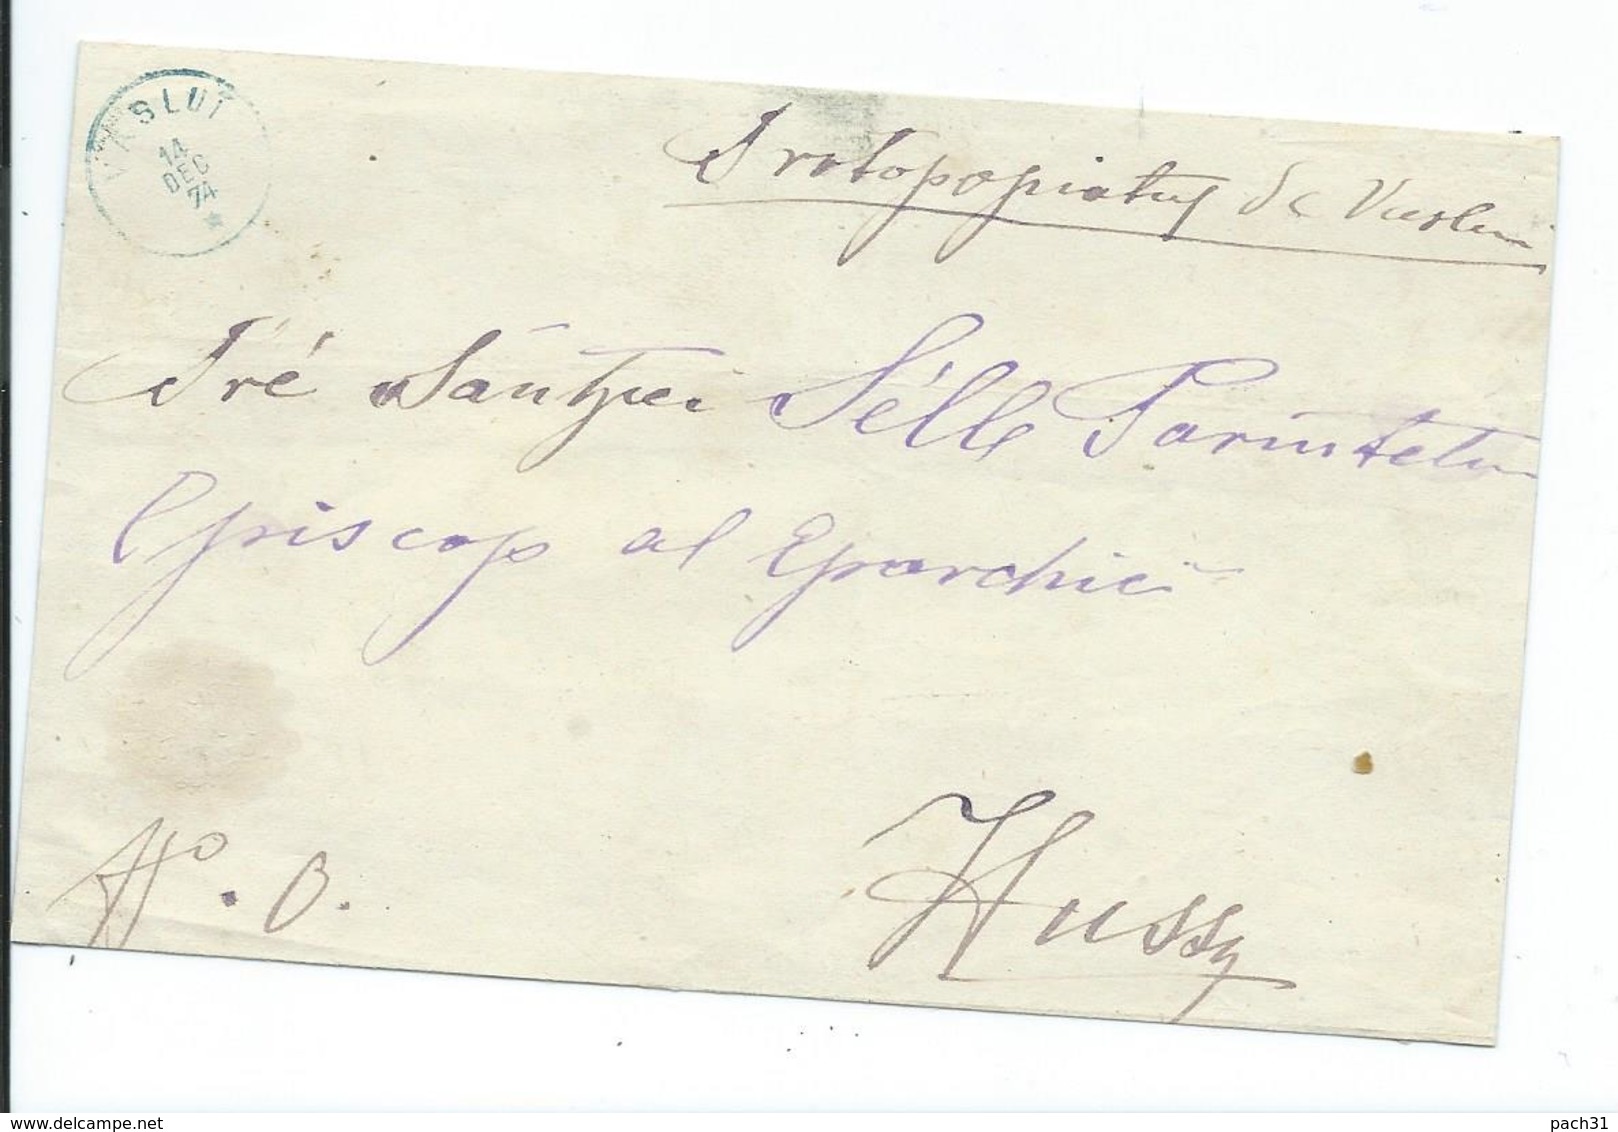 VASLUI
14
DEC
74
Protopopiatul de Vaslui
Pré Sânţiei Selle Parintelui
Episcop al Eparchiei
No. 8.
Hussy
delcampe.net
pach31